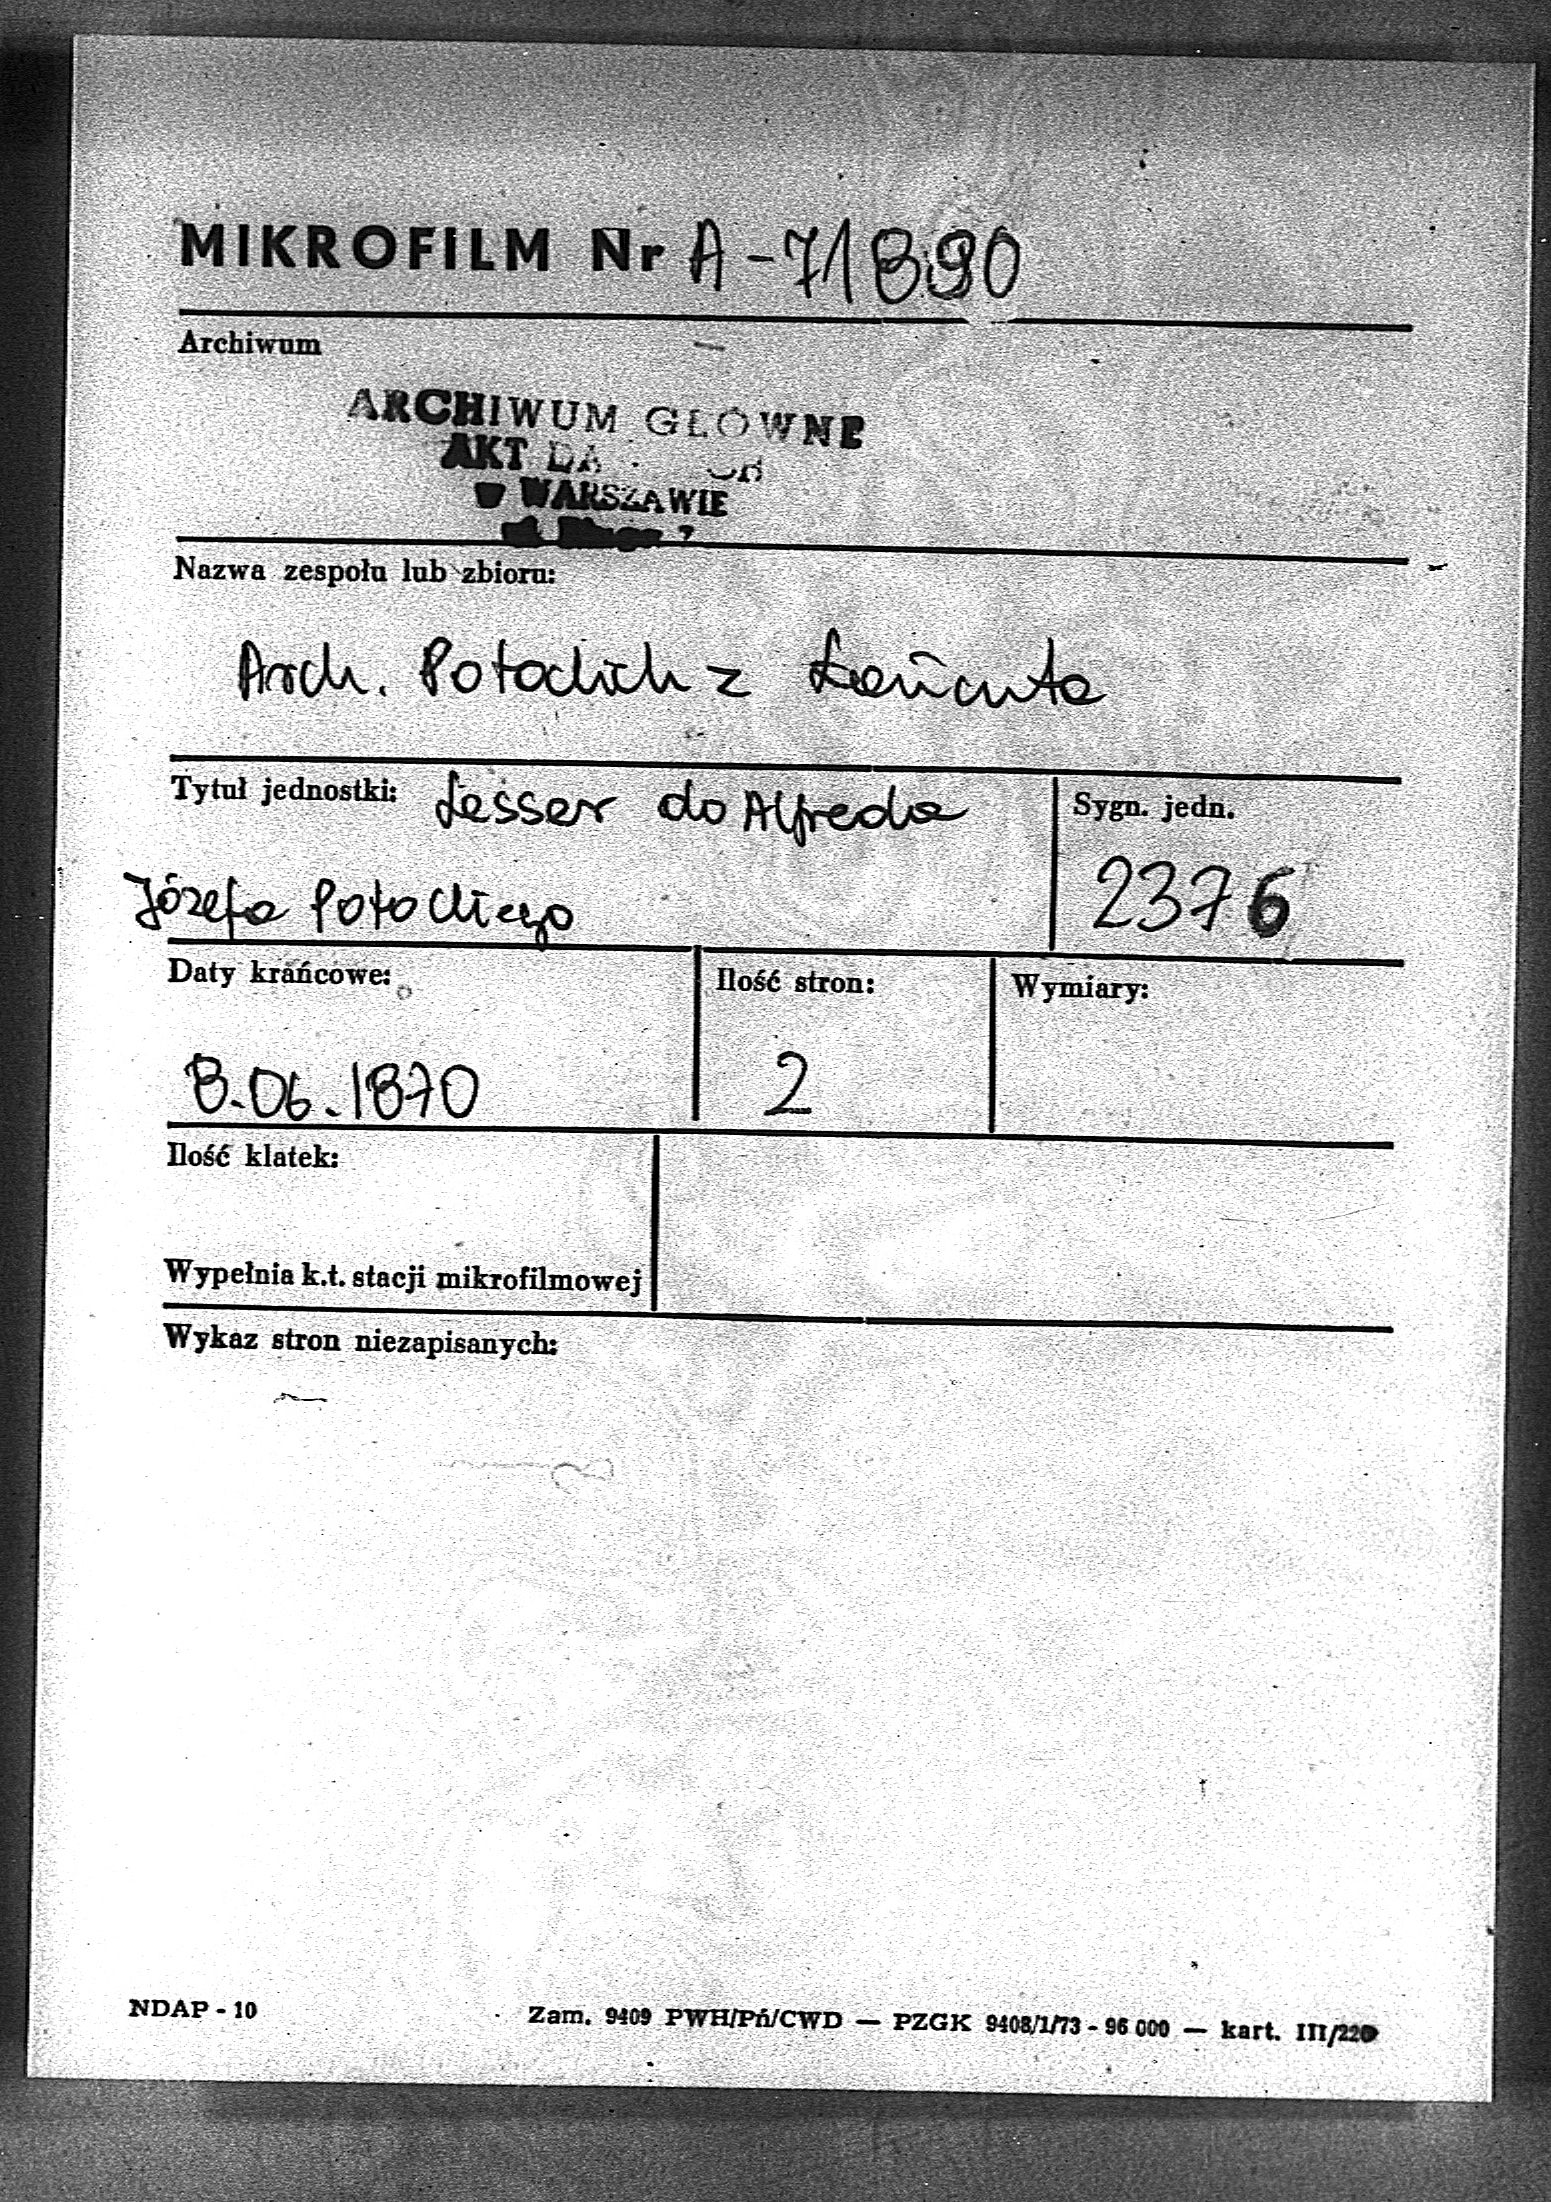 MIKROFILM Nr A-71890
Archiwum
ARCHIWUM GŁÓWNE
AKT
W WARSZAWIE
Nazwa zespołu lub zbioru:
Arch. Potockich z Łańcuta
Tytuł jednostki: Lesser do Alfreda
Józefa Potockiego
Sygn. jedn.
2376
Daty krańcowe:
8.06.1870
Ilość stron:
2
Wymiary:
Ilość klatek:
Wypełnia k.t. stacji mikrofilmowej
Wykaz stron niezapisanych:
NDAP - 10
Zam. 9409 PWH/Pń/CWD — PZGK 9408/1/73 - 96 000 — kart. III/220